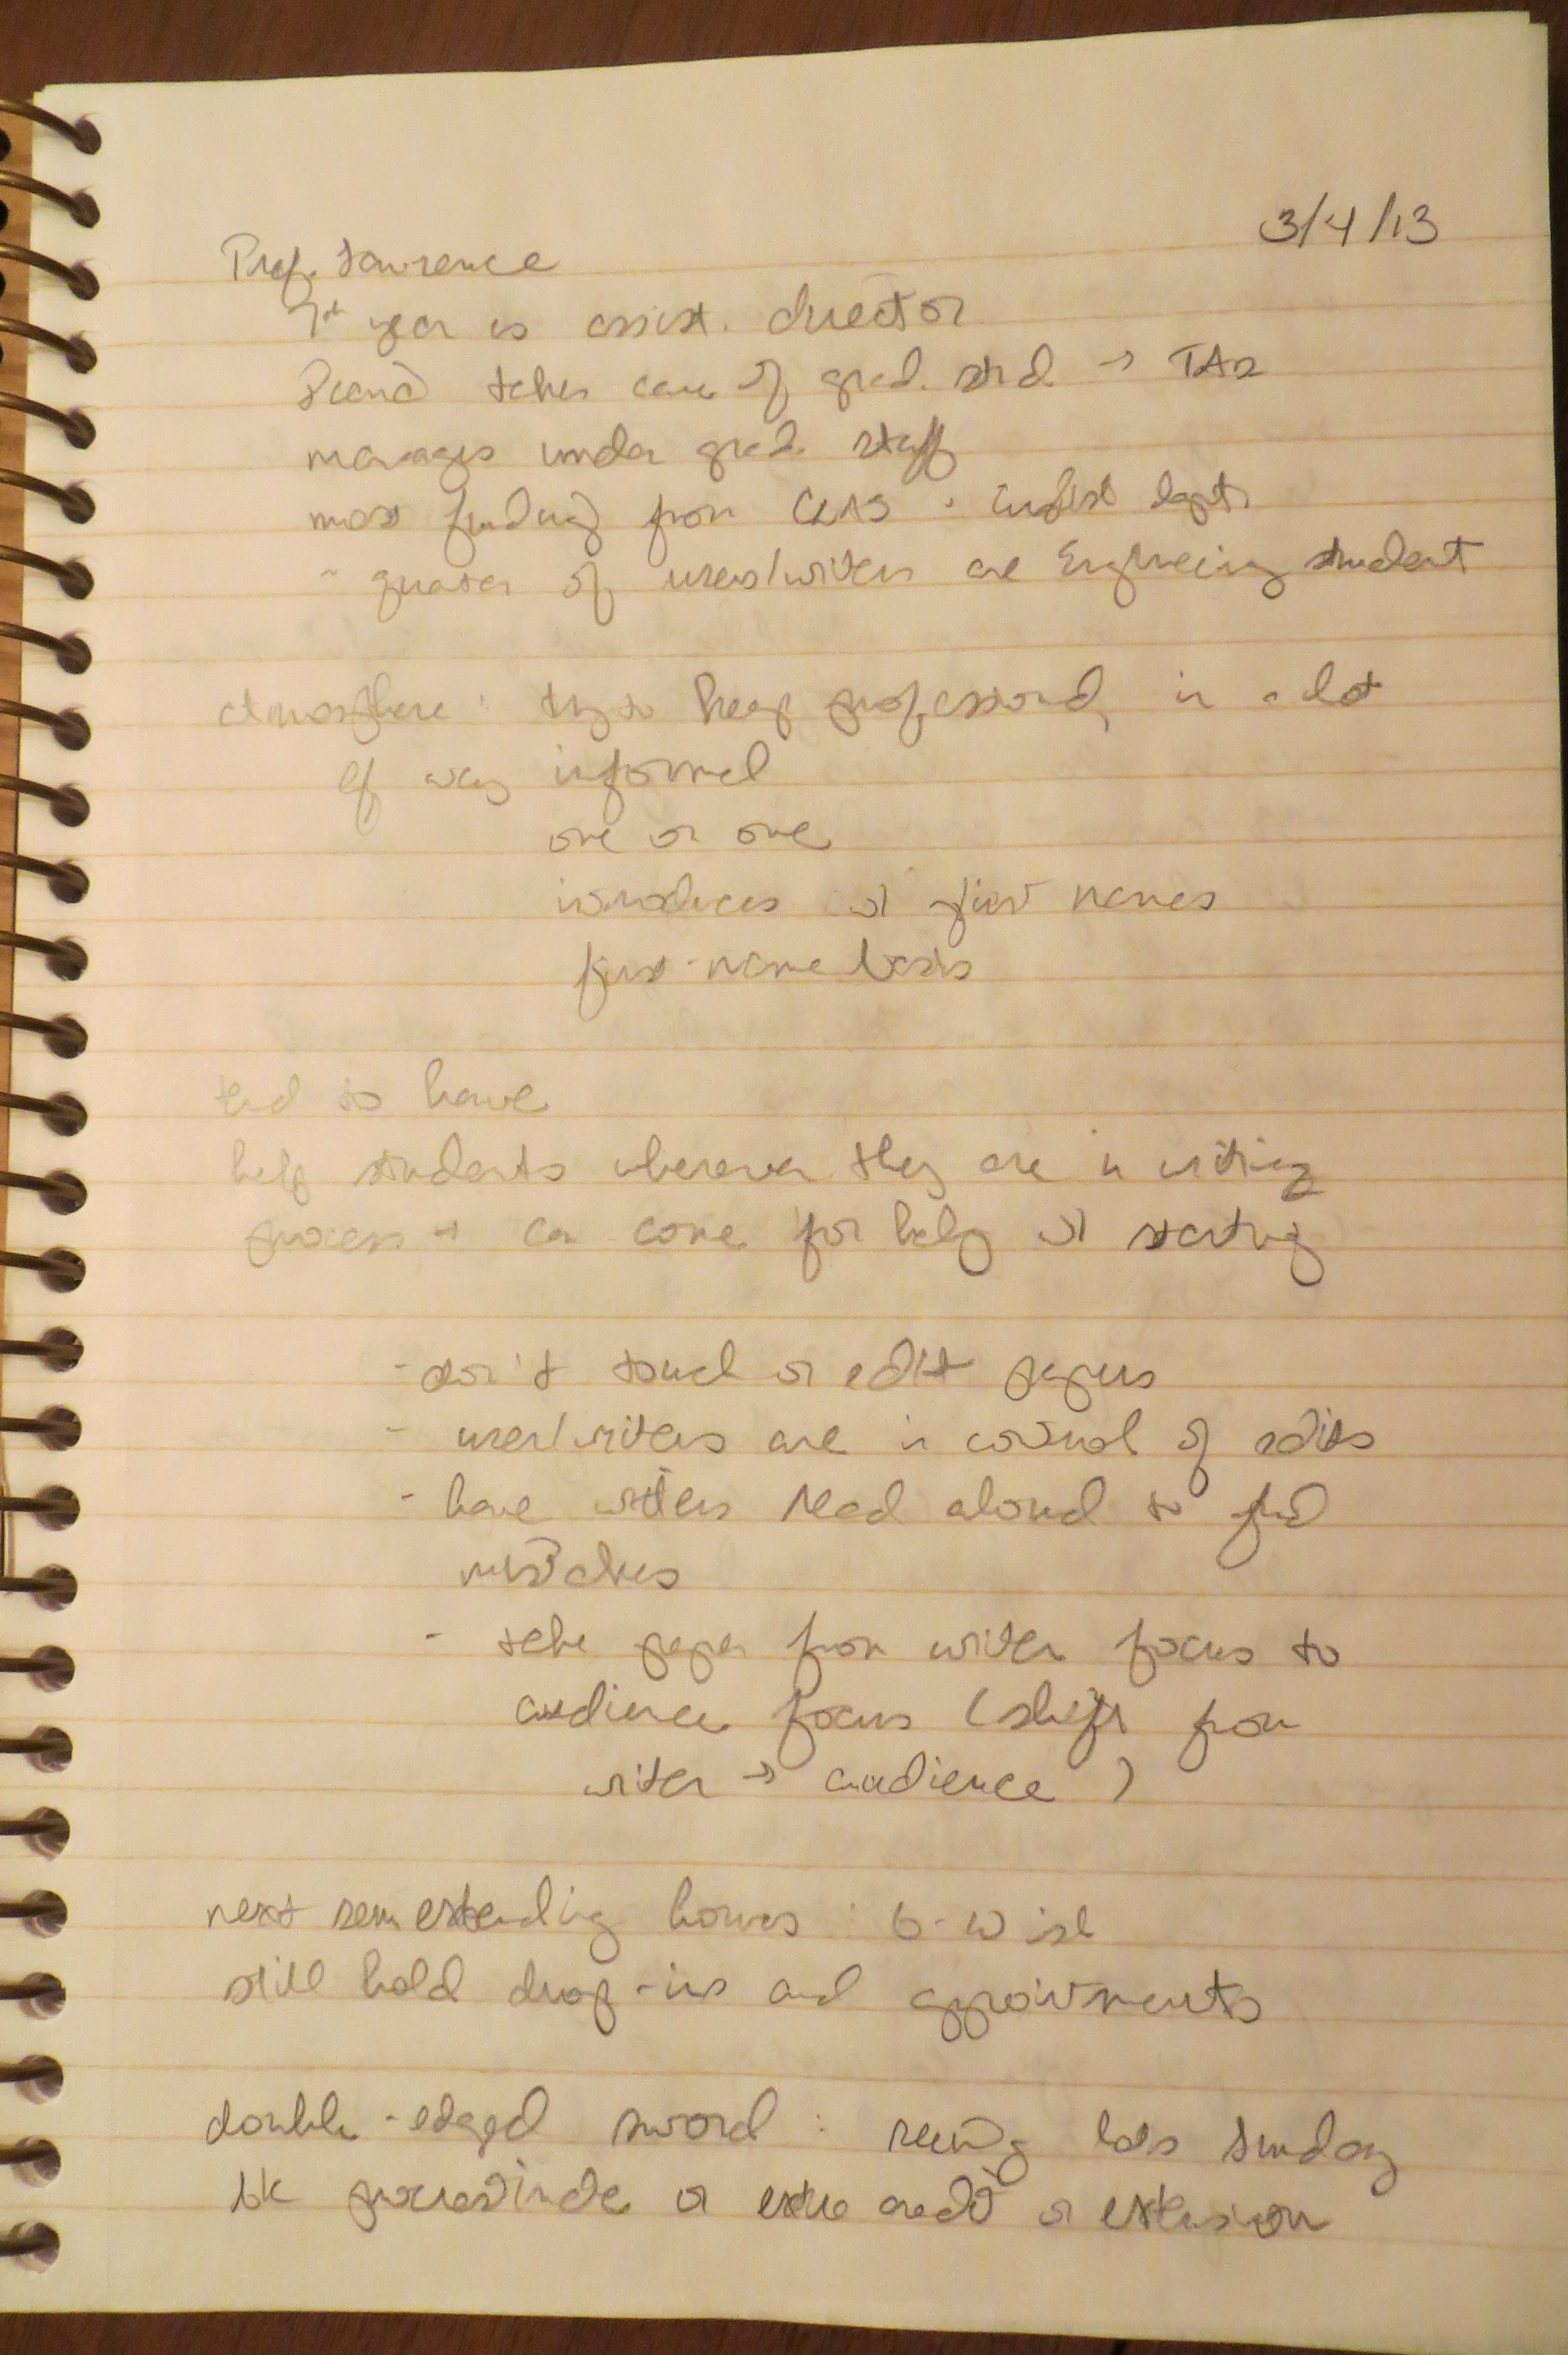 3/4/13
Prof. Lawrence
7th year as assist. director
takes care of grad. stud → TAs
manages under grad. staff
most funding from CLAS · English dept.
- quarter of users/writers are Engineering student
atmosphere: try to keep professional, in a lot
of ways informal
one on one
introduces w/ first names
first-name basis
tend to have
help students wherever they are in writing
process → can come for help w/ starting
- don't touch or edit papers
- users/writers are in control of edits
- have writers read aloud to find
mistakes
- take paper from writer focus to
audience focus (shift from
writer → audience)
next sem extending hours:
still hold drop-ins and appointments
double-edged sword: seeing lots Sunday
b/c procrastinate or extra credit or extension